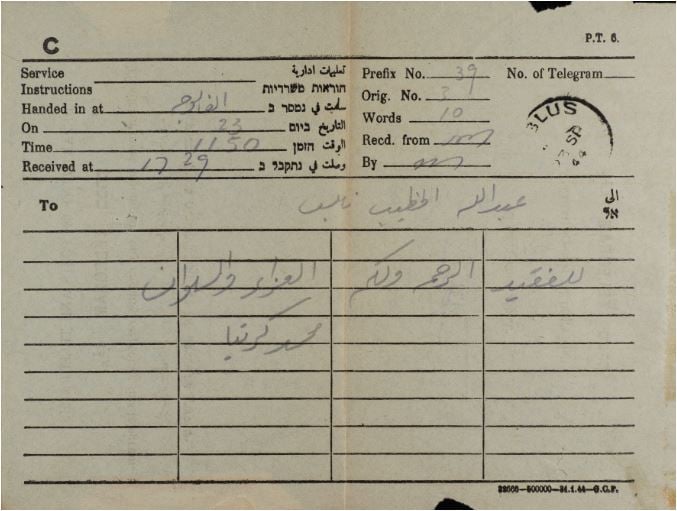 C
P.T. 6.
Service تعليمات ادارية
Instructions הוראות משרדיות
Handed in at الفالوجه سلمت في נמסר ב
On 23 التاريخ ביום
Time 1150 الوقت הזמן
Received at 17 29 وصلت في נתקבל ב
Prefix No. 39 No. of Telegram
Orig. No. 3
Words 10
Recd. from
By
BLUS
SP
To عبدالله الخطيب نابلس الى
אל
للفقيد الرحمه ولكم العزاء والسلوان
محمد كرتيا
32666—500000—24.1.44—G.C.P.